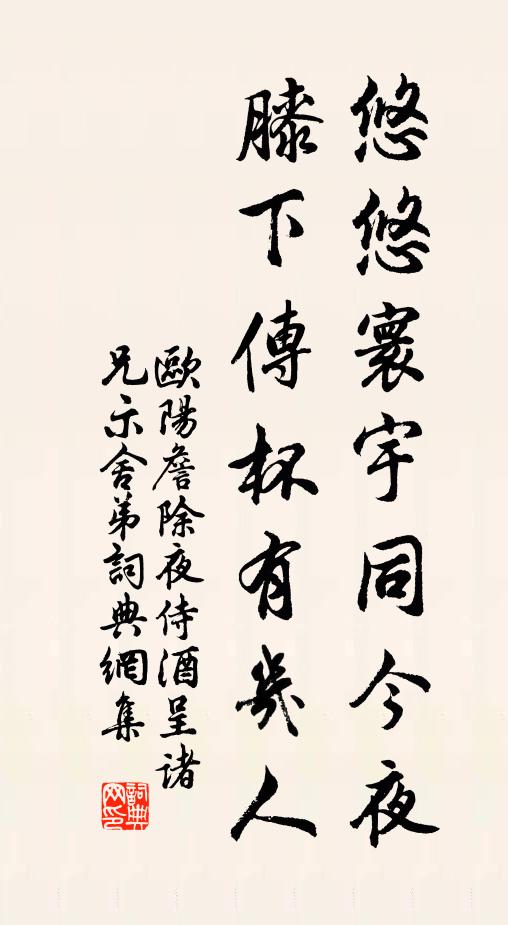 悠悠寰宇同今夜
膝下傳杯有幾人
歐陽詹除夜侍酒呈諸
兄示舍弟詞典網集
詞典
网印